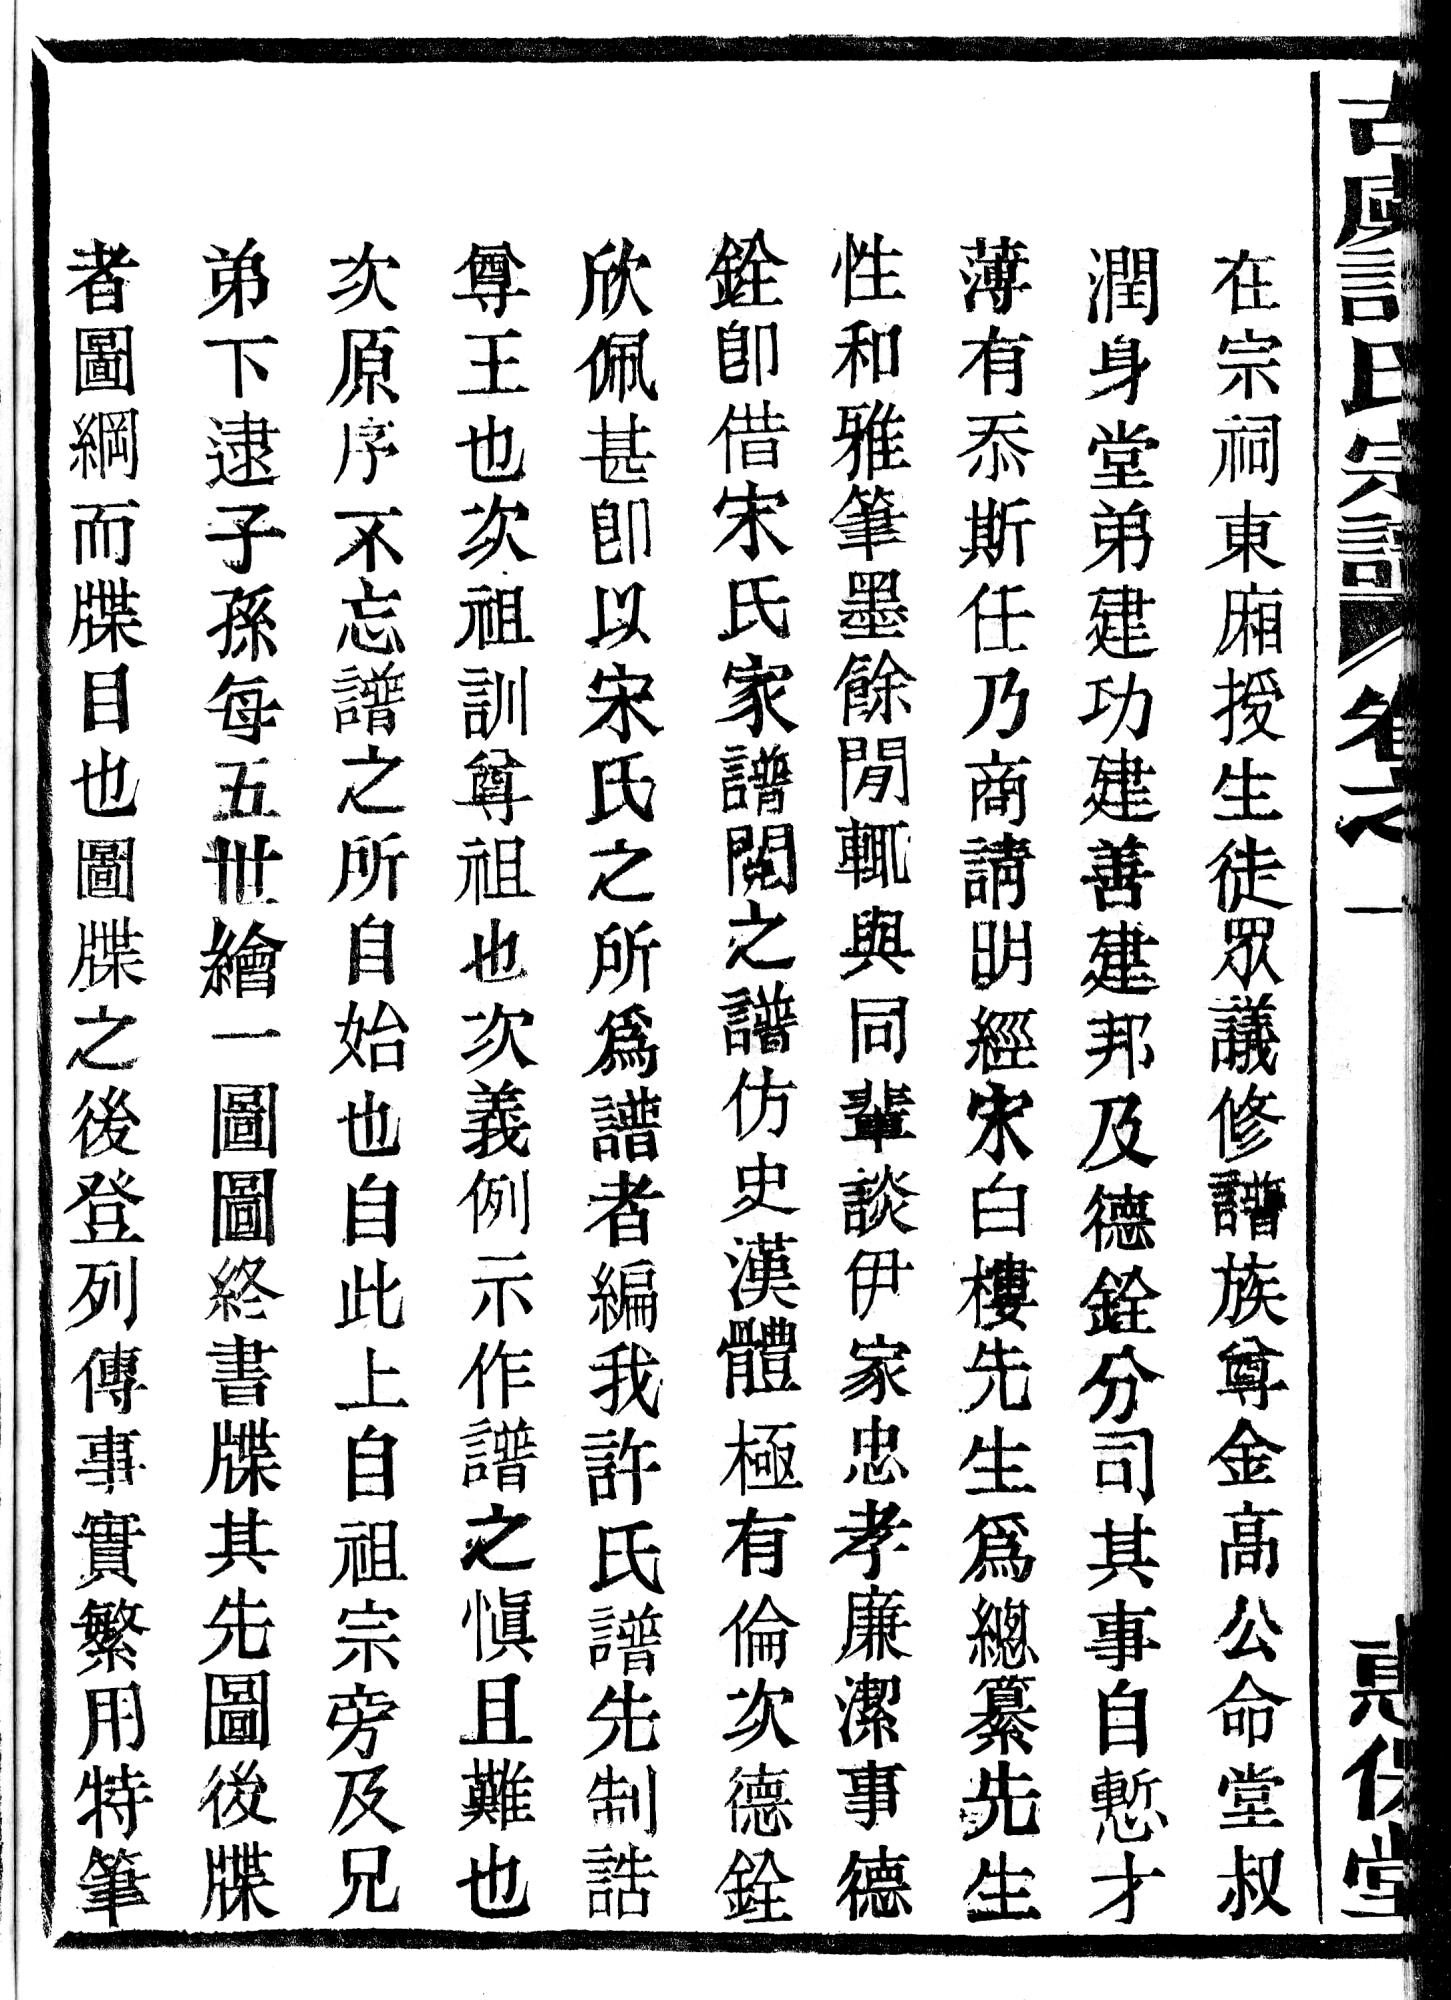 古虞許氏宗譜 卷之一 惠保堂
在宗祠東廂授生徒眾議修譜族尊金高公命堂叔
潤身堂弟建功建善建邦及德銓分司其事自慙才
薄有忝斯任乃商請明經宋白樓先生爲總纂先生
性和雅筆墨餘閒輒與同輩談伊家忠孝廉潔事德
銓卽借宋氏家譜閱之譜仿史漢體極有倫次德銓
欣佩甚卽以宋氏之所爲譜者編我許氏譜先制誥
尊王也次祖訓尊祖也次義例示作譜之愼且難也
次原序不忘譜之所自始也自此上自祖宗旁及兄
弟下逮子孫每五世繪一圖圖終書牒其先圖後牒
者圖綱而牒目也圖牒之後登列傳事實繁用特筆